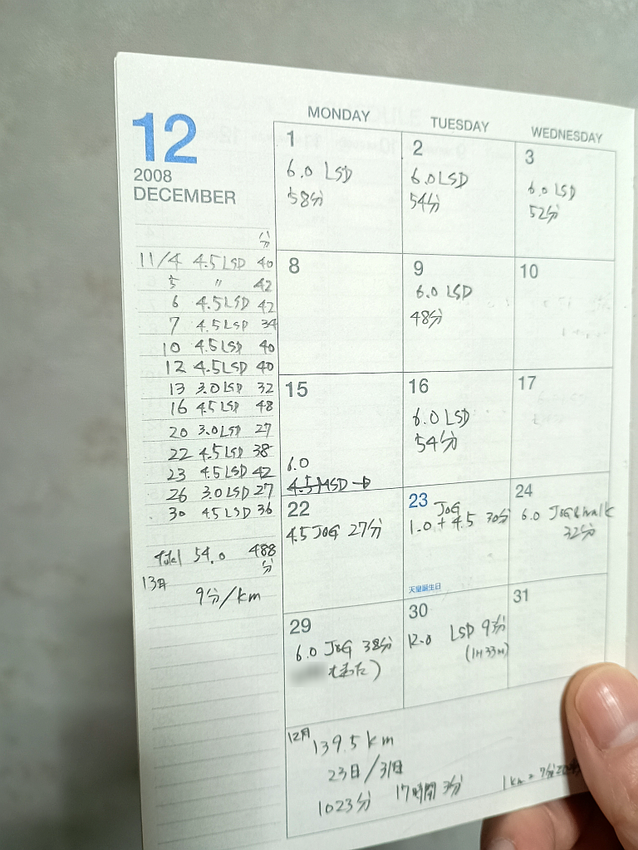 12
2008
DECEMBER
分
11/4 4.5 LSD 40
5 〃 42
6 4.5 LSD 42
7 4.5 LSD 34
10 4.5 LSD 40
12 4.5 LSD 40
13 3.0 LSD 32
16 4.5 LSD 48
20 3.0 LSD 27
22 4.5 LSD 38
23 4.5 LSD 42
26 3.0 LSD 27
30 4.5 LSD 36
total 54.0 488
分
13日
9分/km
MONDAY TUESDAY WEDNESDAY
1
6.0 LSD
58分
2
6.0 LSD
54分
3
6.0 LSD
52分
8
9
6.0 LSD
48分
10
15
6.0
4.5 MSD →
16
6.0 LSD
54分
17
22
4.5 JOG 27分
23
JOG
1.0 + 4.5 30分
天皇誕生日
24
6.0 JOG&walk
32分
29
6.0 JOG 38分
30
12.0 LSD 9分
(1H 33M)
31
12月
139.5 km
23日/31日
1023分 17時間 3分
1km =